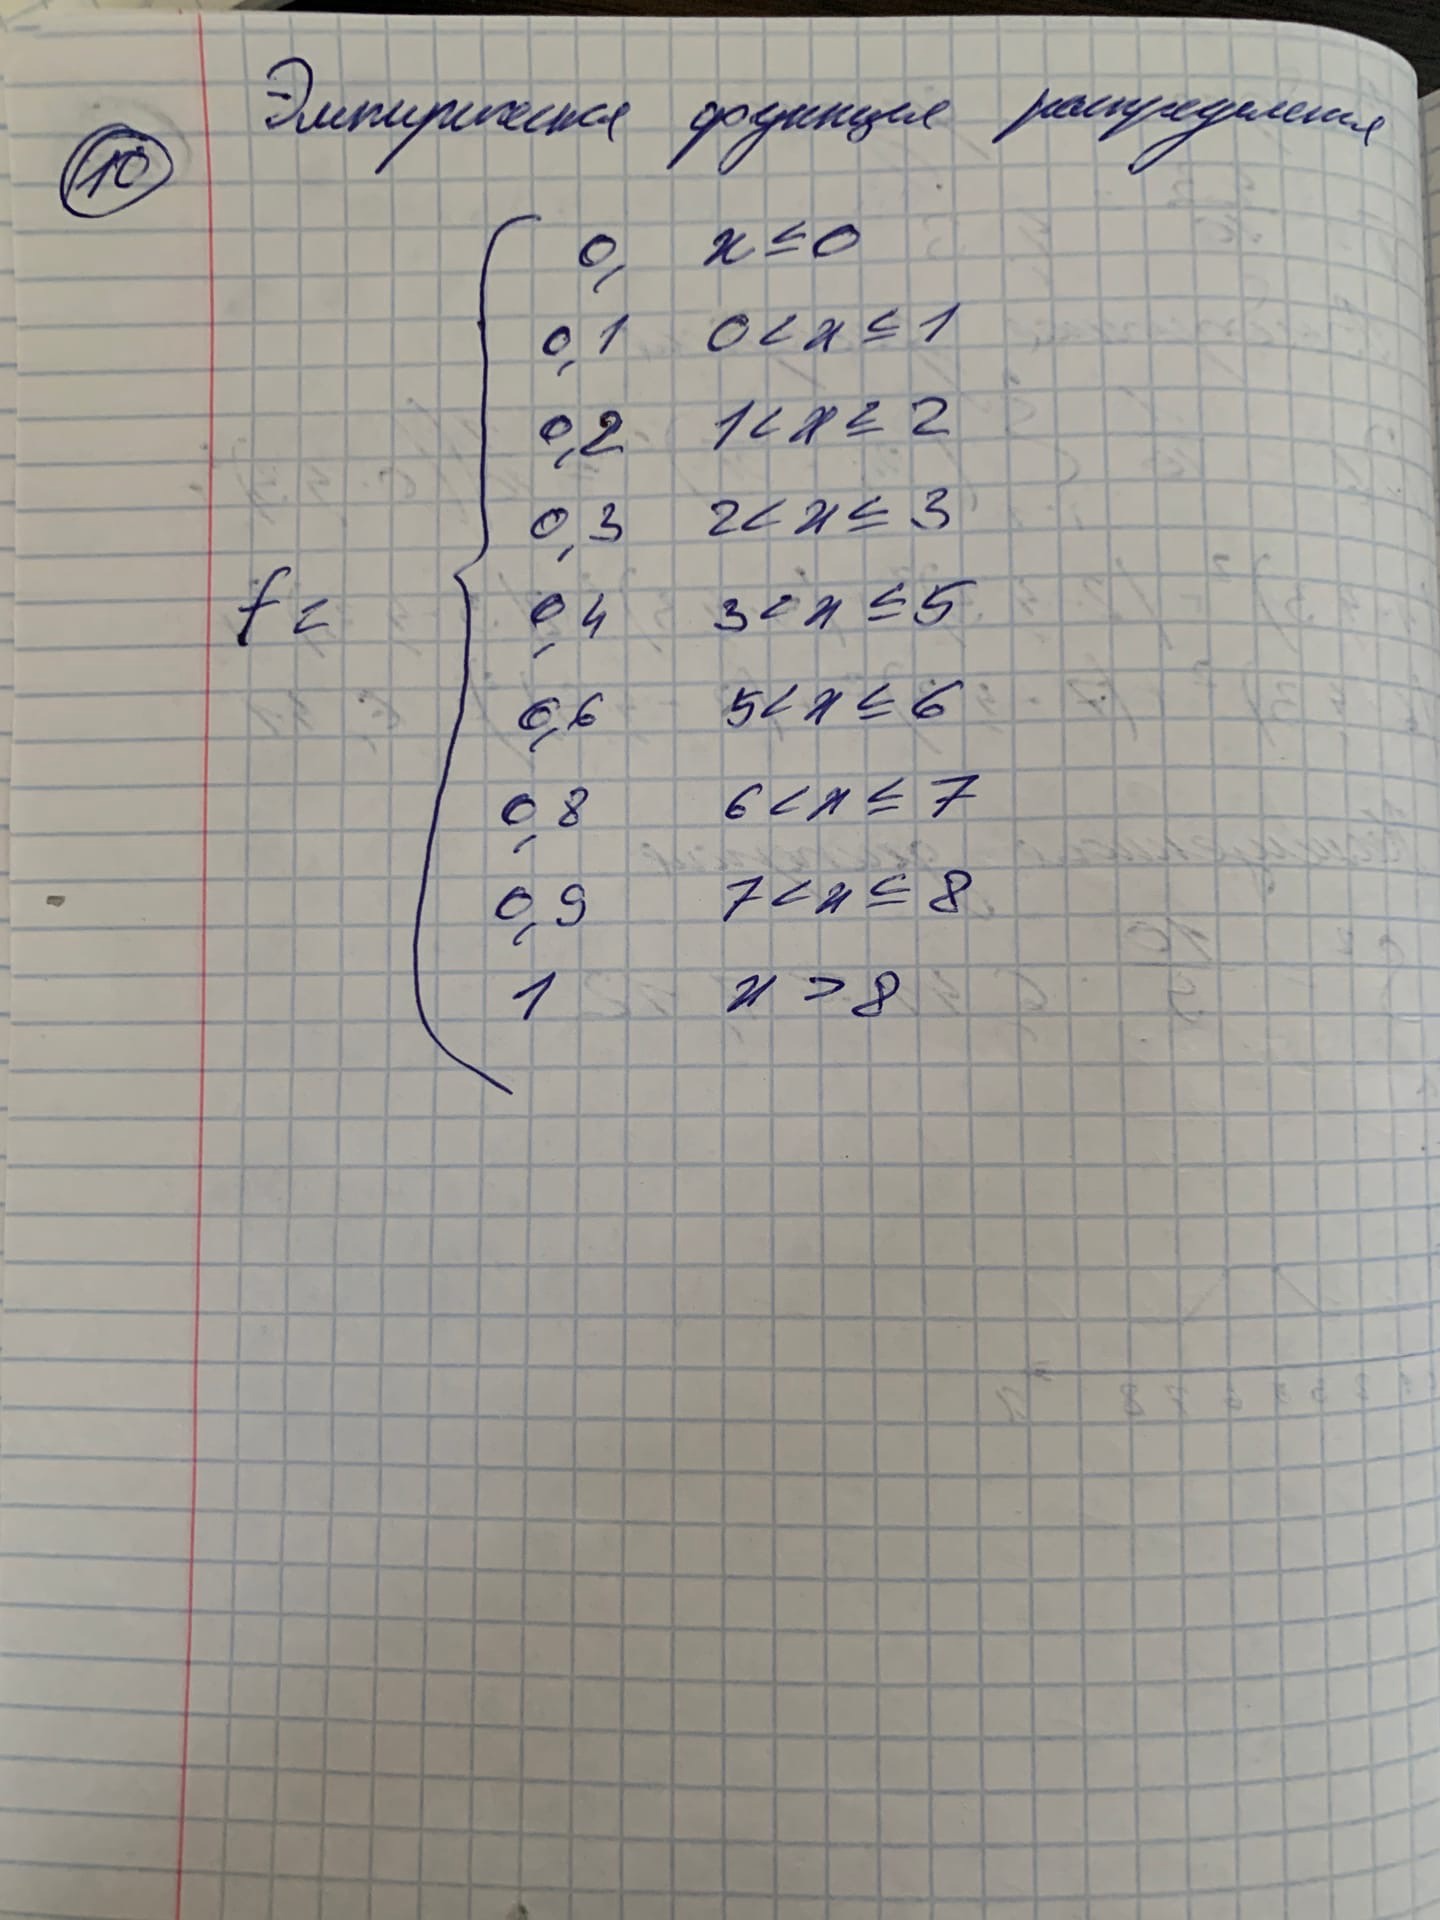 Эмпирическая функция распределения
10
0, x ≤ 0
0,1 0 < x ≤ 1
0,2 1 < x ≤ 2
0,3 2 < x ≤ 3
f = 0,4 3 < x ≤ 5
0,6 5 < x ≤ 6
0,8 6 < x ≤ 7
0,9 7 < x ≤ 8
1 x > 8